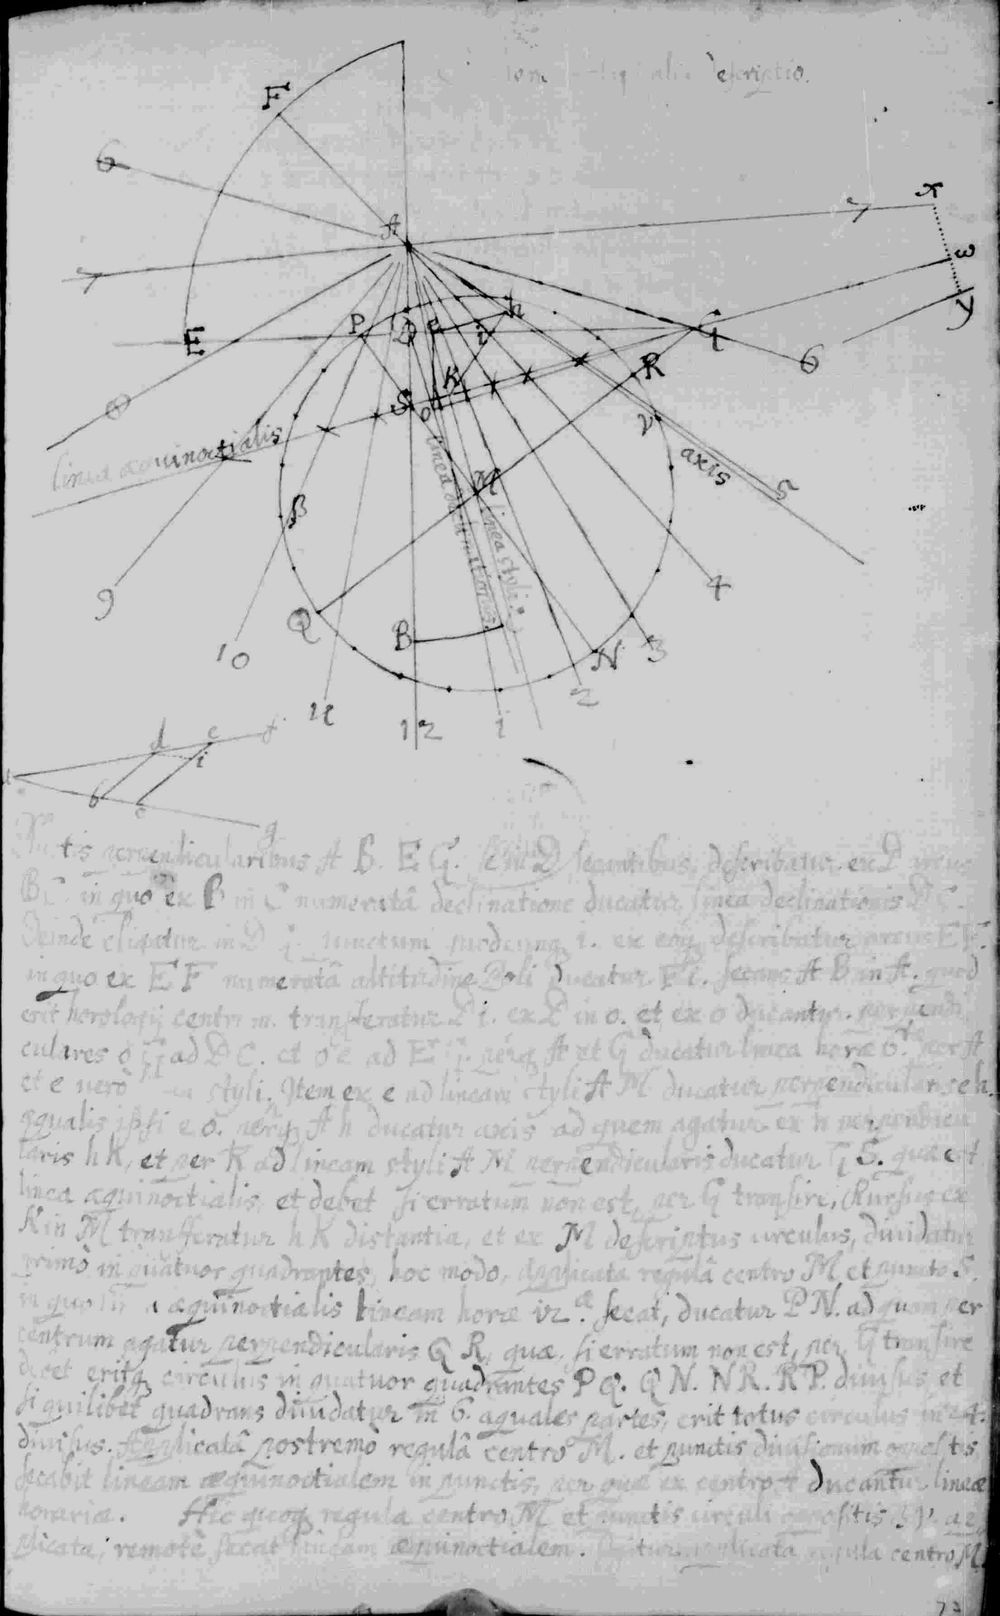 descriptio.
F
6
A
7
x
7
ω
y
E
P
D
e
h
i
G
6
R
K
S
o
ν
linea æquinoctialis
axis
5
β
M
linea declinationis
linea styli
4
9
Q
B
N
3
10
2
11
12
1
d
e
f
i
b
c
g
perpendicularibus A B. E G. sese in D secantibus, describatur ex D arcus
B C. in quo ex B in C numeratâ declinatione ducatur linea declinationis D C.
Deinde eligatur in D G. punctum i. ex eoq describatur arcus E F.
in quo ex E F numeratâ altitudine Poli ducatur F i. secans A B in A. quod
erit horologij centrum. transferatur D i. ex D in o. et ex o ducantur perpendi
culares o G ad D C. et o e ad E G. perq A et G ducatur linea horæ 6. per A
et e verò styli. Item ex e ad lineam styli A M ducatur perpendicularis e h.
æqualis ipsi e o. perq A h ducatur axis ad quem agatur ex h perpendicu
laris h K, et per K ad lineam styli A M perpendicularis ducatur G S. quæ est
linea æquinoctialis, et debet si erratum non est, per G transire, Rursus ex
K in M transferatur h K distantia, et ex M descriptus circulus, dividatur
primò in quatuor quadrantes, hoc modo, Applicata regulâ centro M et puncto S.
in quo æquinoctialis lineam horæ 12. secat, ducatur P N. ad quam per
centrum agatur perpendicularis Q R, quæ, si erratum non est, per G transire
debet eritq circulus in quatuor quadrantes P Q. Q N. N R. R P. divisus, et
si quilibet quadrans dividatur in 6. æquales partes, erit totus circulus in 24.
divisus. Applicatâ postremò regulâ centro M. et punctis divisionum oppositis
secabit lineam æquinoctialem in punctis, per quæ ex centro A ducantur lineæ
horariæ. Hic quoq regula centro M et punctis circuli oppositis β ν. ap
plicata, remotè secat lineam æquinoctialem. applicata regula centro M